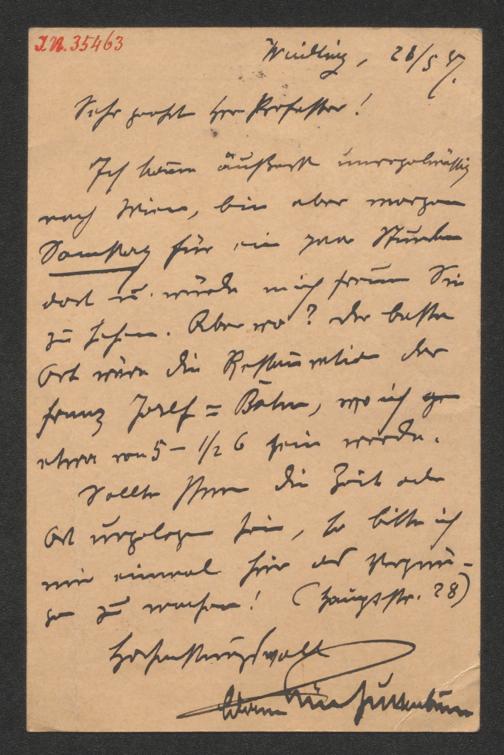 I.N. 35463
Weidling, 28/5 97.
Sehr geehrter Herr Professor!
Ich komme äußerst unregelmässig
nach Wien, bin aber morgen
Samstag für ein paar Stunden
dort u. würde mich freuen Sie
zu sehen. Aber wo? Der beste
Ort wäre die Restauration der
Franz Josef = Bahn, wo ich
etwa von 5 – 1/2 6 sein werde.
Sollte Ihnen die Zeit oder
Ort ungelegen sein, so bitte ich
mir einmal hier das Vergnü-
gen zu machen! (Hauptstr. 28)
Hochachtungsvoll
Adam Müller Guttenbrunn